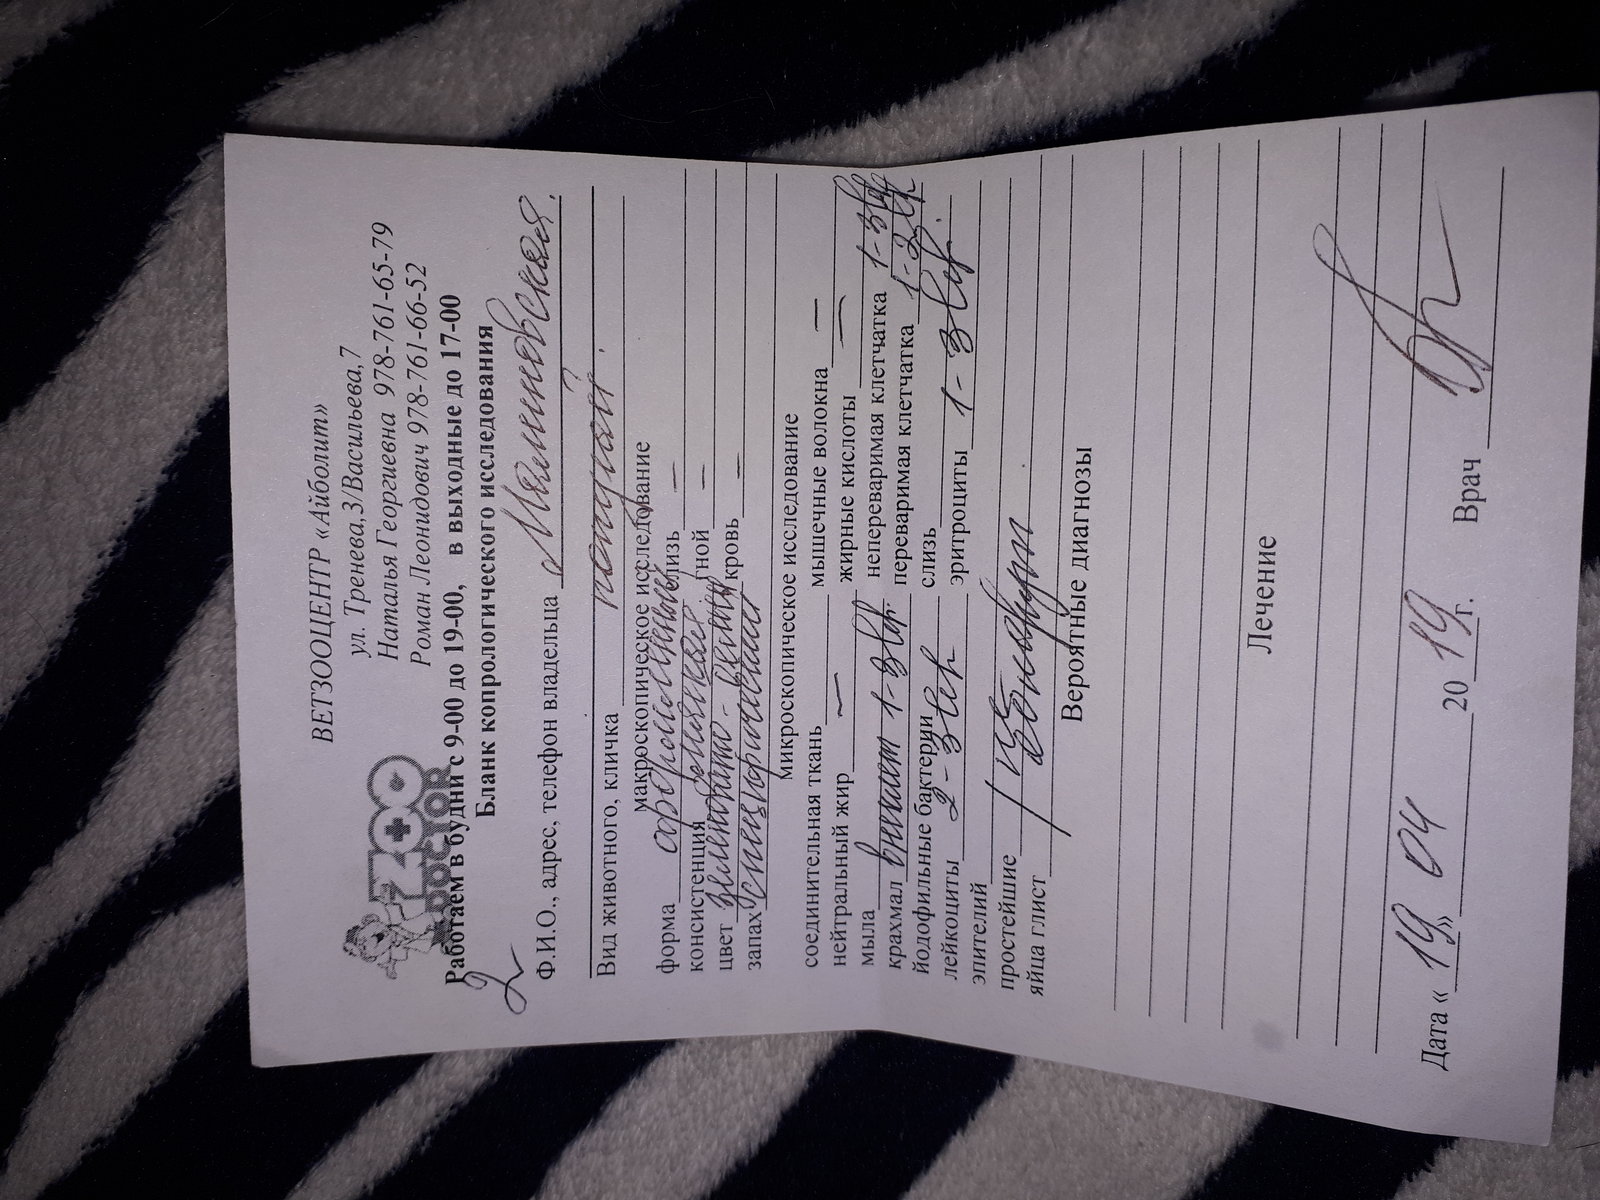 ВЕТЗООЦЕНТР «Айболит»
ул. Тренева,3/Васильева,7
Наталья Георгиевна 978-761-65-79
Роман Леонидович 978-761-66-52
ZOO
DOCTOR
Работаем в будни с 9-00 до 19-00, в выходные до 17-00
Бланк копрологического исследования
2
Ф.И.О., адрес, телефон владельца
Вид животного, кличка попугай.
макроскопическое исследование
форма слизь —
консистенция гной —
цвет кровь —
запах специфический
микроскопическое исследование
соединительная ткань мышечные волокна —
нейтральный жир — жирные кислоты —
мыла непереваримая клетчатка 1-3
крахмал 1-3 переваримая клетчатка 1-2
йодофильные бактерии слизь
лейкоциты 2-3 эритроциты 1-3
эпителий
простейшие
яйца глист
Вероятные диагнозы
Лечение
Дата «19» 04 2019г. Врач